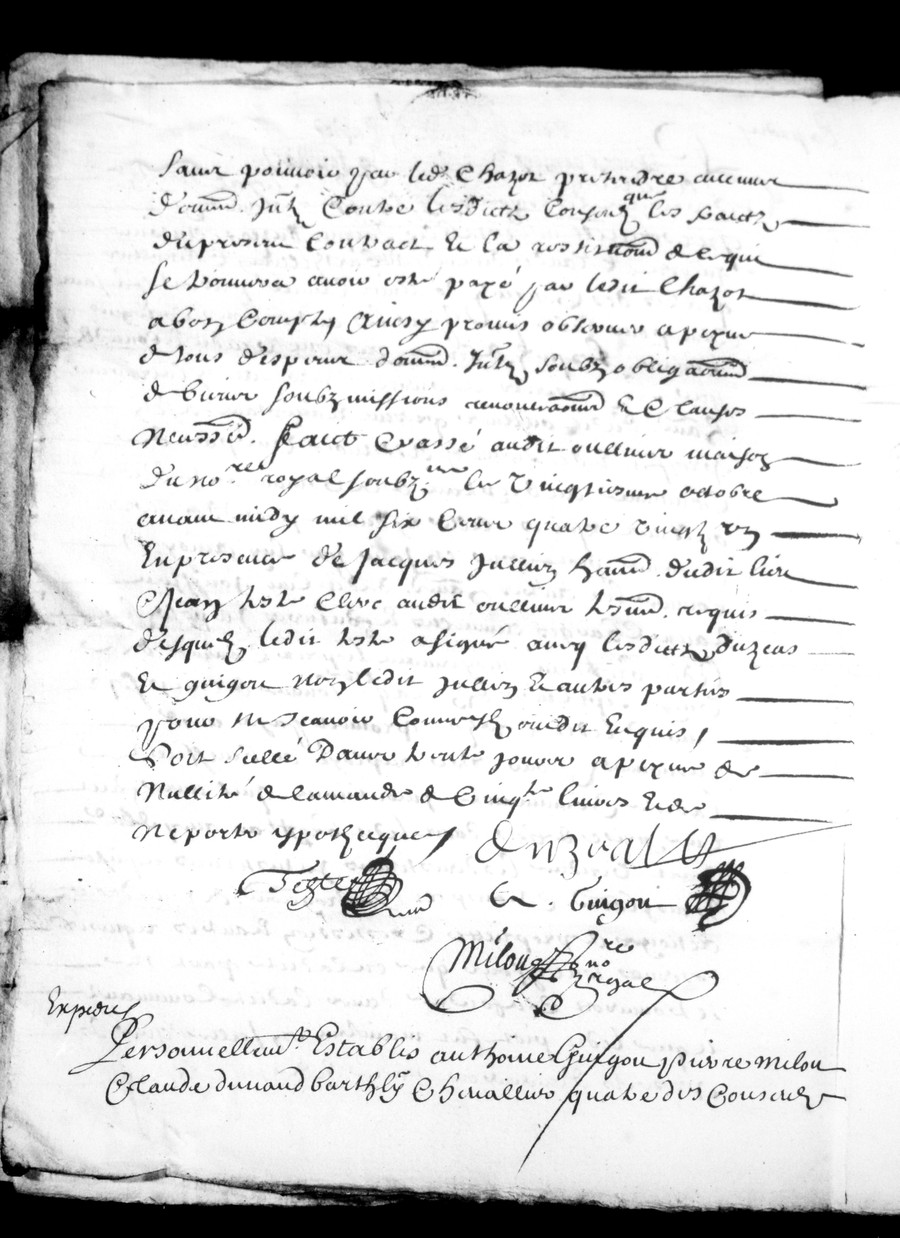 sans pouvoir par led. Chazot pretendre aucuns
domd. Intz Contre lesdictz Consulz que les faictz
du present Contract Et la restituaond de ce qui
se trouvera avoir esté payé par ledit Chazot
a bon Compte Ainsy promis observer a peyne
de tous despens domd. Intz soubz obligaond
de biens soubzmissions renonciaond Et Clauses
Necessrd faict Et passé audit oullins maison
du nore royal soubzné le vingtiesme octobre
avant midy mil six Cens quatre vingtz un
En presence de Jacques Jullien habd. dudit lieu
Jean teste Clerc audit oullins tesmd. requis
desquelz ledit teste a signé avec lesdittz Duzeas
Et guigou Non ledit Jullien Et autres parties
pour ne scavoir Comme ont dit Enquis /
Soit scellé Dans trente jours a peyne de
Nullité de lamande de Cinqte livres Et de
Ne porter ypothecque /
Teste
A. Guigou
Milou nore royal
Expedié
Personnellemt Establis anthoine Guigou pierre milou
Claude dunand barthly Chevallier quatre des Consulz